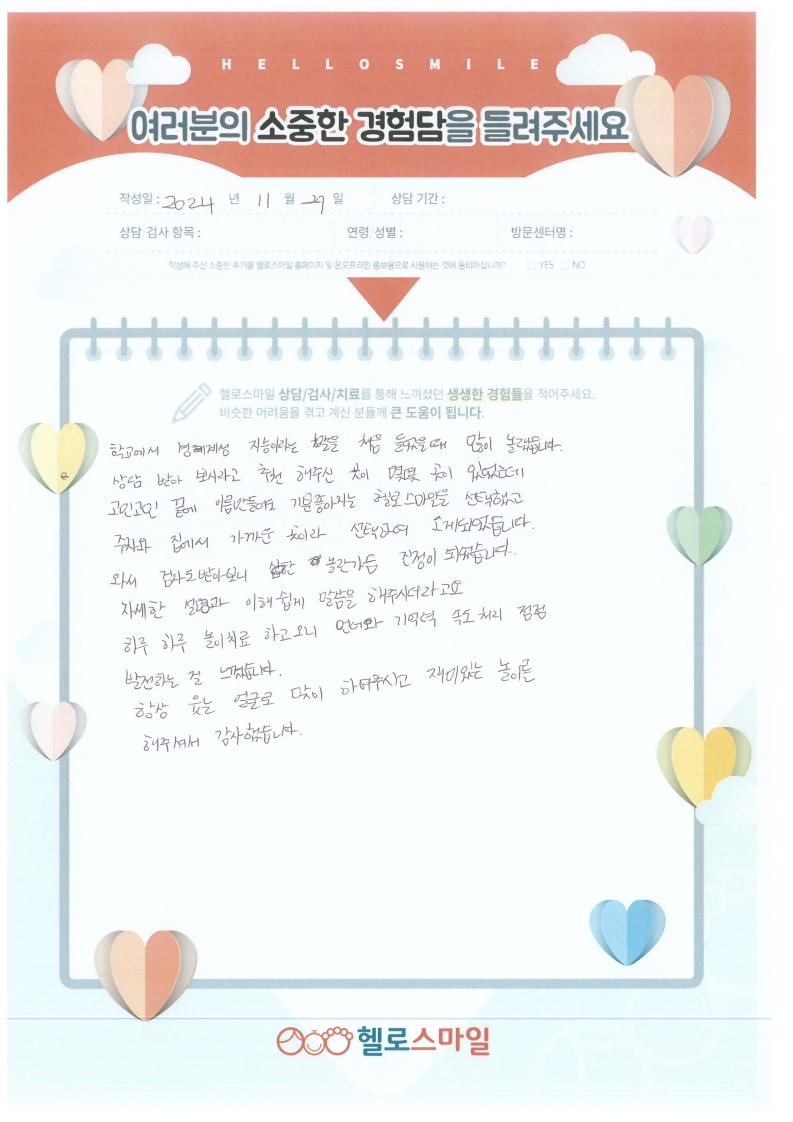 HELLOSMILE
여러분의 소중한 경험담을 들려주세요
작성일 : 2024 년 11 월 29 일 상담 기간 :
상담 검사 항목 : 연령 성별 : 방문센터명 :
작성해 주신 소중한 후기를 헬로스마일 홈페이지 및 온오프라인 홍보용으로 사용하는 것에 동의하십니까? YES NO
헬로스마일 상담/검사/치료를 통해 느끼셨던 생생한 경험들을 적어주세요.
비슷한 어려움을 겪고 계신 분들께 큰 도움이 됩니다.
학교에서 경계성 지능이라는 말을 처음 들었을때 많이 놀랬습니다.
상담 받아 보시라고 추천 해주신 곳이 몇몇 곳이 있었는데
고민고민 끝에 이름만들어도 기분좋아지는 헬로스마일을 선택했고
주차와 집에서 가까운 곳이라 선택하여 오게되었습니다.
와서 검사도받아보니 놀란가슴 진정이 되었습니다.
자세한 설명과 이해쉽게 말씀을 해주시더라고요
하루 하루 놀이치료 하고오니 언어와 기억력 속도처리 점점
발전하는 걸 느꼈습니다.
항상 웃는 얼굴로 맞이 하여주시고 재미있는 놀이를
해주셔서 감사했습니다.
헬로스마일